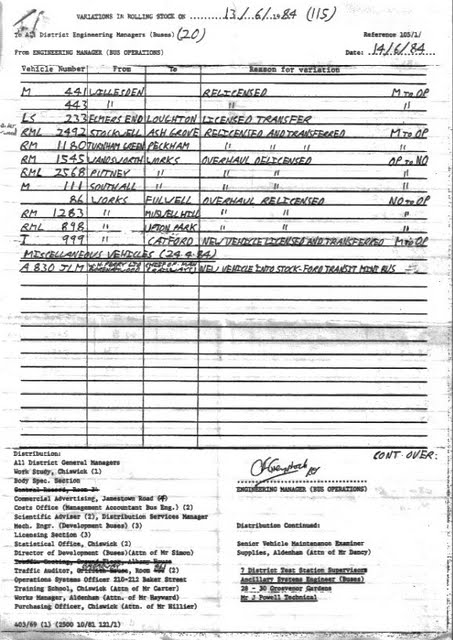 VARIATIONS IN ROLLING STOCK ON 13/6/1984 (115)
To All District Engineering Managers (Buses) (20)
Reference 105/1/
From ENGINEERING MANAGER (BUS OPERATIONS)
Date: 14/6/84
Vehicle Number From To Reason for variation
M 441 WILLESDEN RELICENSED M TO OP
443 " " "
LS 233 ELMERS END LOUGHTON LICENSED TRANSFER
RML 2492 STOCKWELL ASH GROVE RELICENSED AND TRANSFERRED M TO OP
RM 1180 TURNHAM GREEN PECKHAM " " " "
RM 1545 WANDSWORTH WORKS OVERHAUL DELICENSED OP TO NO
RML 2568 PUTNEY " " " "
M 111 SOUTHALL " " " "
86 WORKS FULWELL OVERHAUL RELICENSED NO TO OP
RM 1283 " MUSWELL HILL " " "
RML 898 " UPTON PARK " " "
T 999 " CATFORD NEW VEHICLE LICENSED AND TRANSFERRED M TO OP
MISCELLANEOUS VEHICLES (24·4·84)
A 830 JLM NEW VEHICLE INTO STOCK - FORD TRANSIT MINI BUS
CONT OVER:
Distribution:
All District General Managers
Work Study, Chiswick (1)
Body Spec. Section
Commercial Advertising, Jamestown Road
Costs Office (Management Accountant Bus Eng.) (2)
Scientific Adviser (2), Distribution Services Manager
Mech. Engr. (Development Buses) (3)
Licensing Section (3)
Statistical Office, Chiswick (2)
Director of Development (Buses)(Attn of Mr Simon)
Traffic Auditor, Room (2)
Operations Systems Officer 210-212 Baker Street
Training School, Chiswick (Attn of Mr Carter)
Works Manager, Aldenham (Attn of Mr Hayward)
Purchasing Officer, Chiswick (Attn of Mr Hillier)
403/69 (1) (2500 10/81 121/1)
for
ENGINEERING MANAGER (BUS OPERATIONS)
Distribution Continued:
Senior Vehicle Maintenance Examiner
Supplies, Aldenham (Attn of Mr Dancy)
7 District Test Station Supervisors
Ancillary Systems Engineer (Buses)
28 - 30 Grosvenor Gardens
Mr J Powell Technical